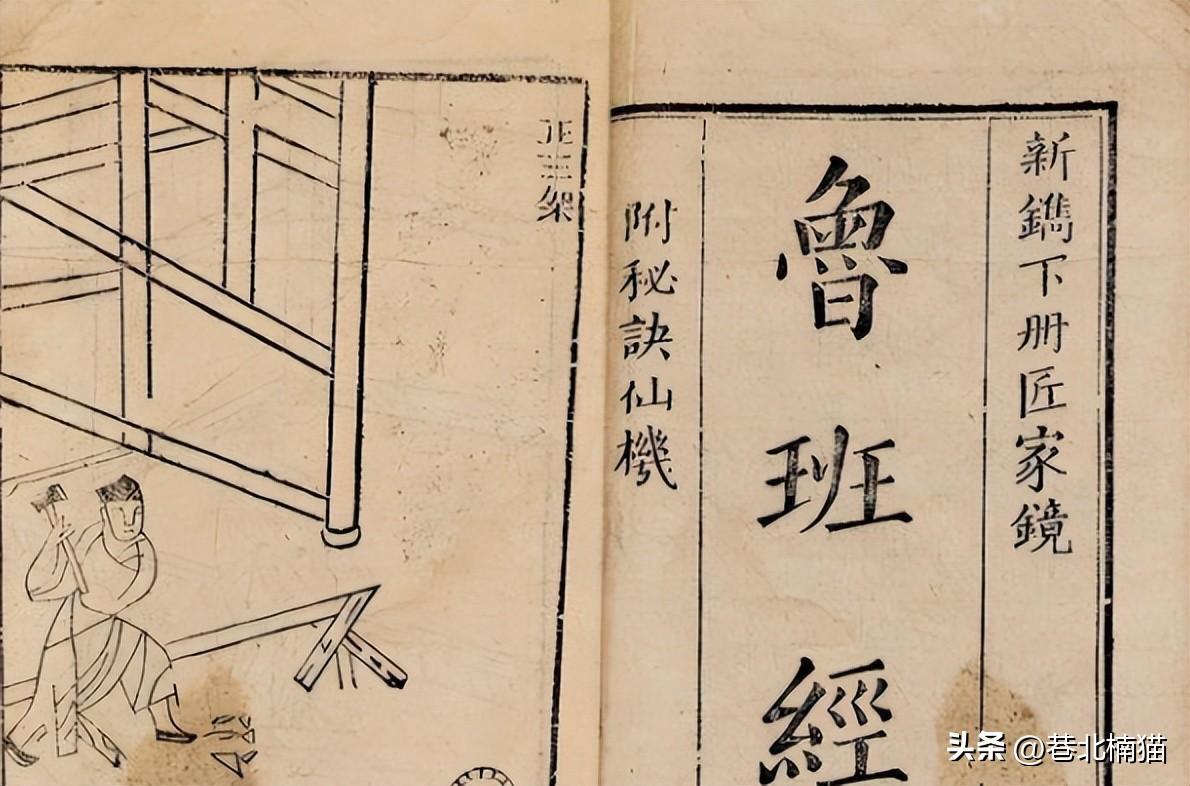 新鐫下册匠家鏡
魯班經
附秘訣仙機
正三架
头条 @巷北楠猫